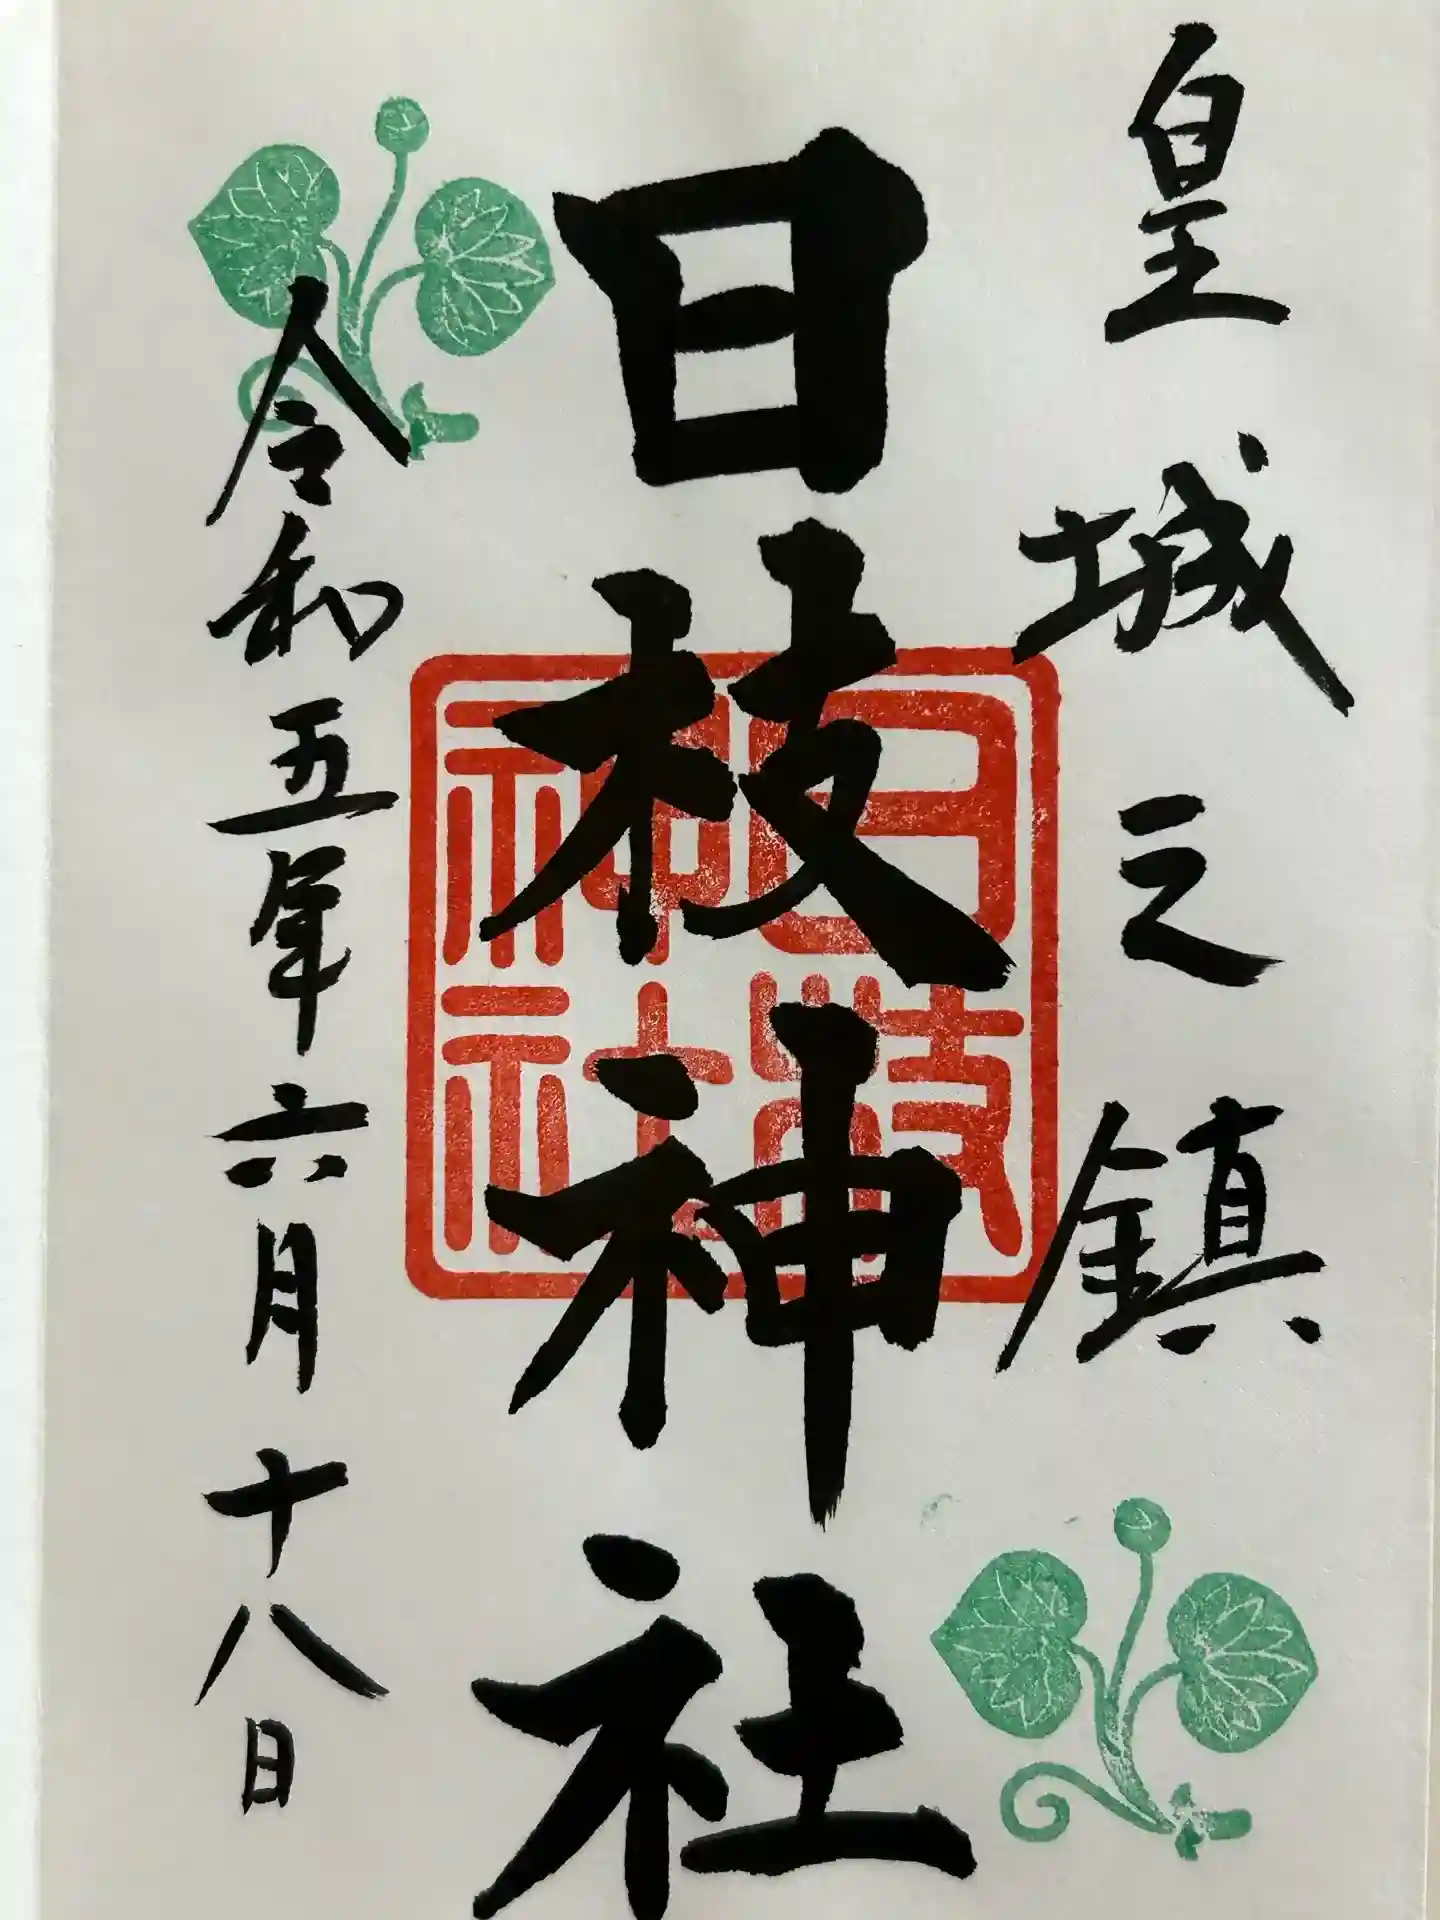 皇城之鎮
日枝神社
日枝神社
令和五年六月十八日